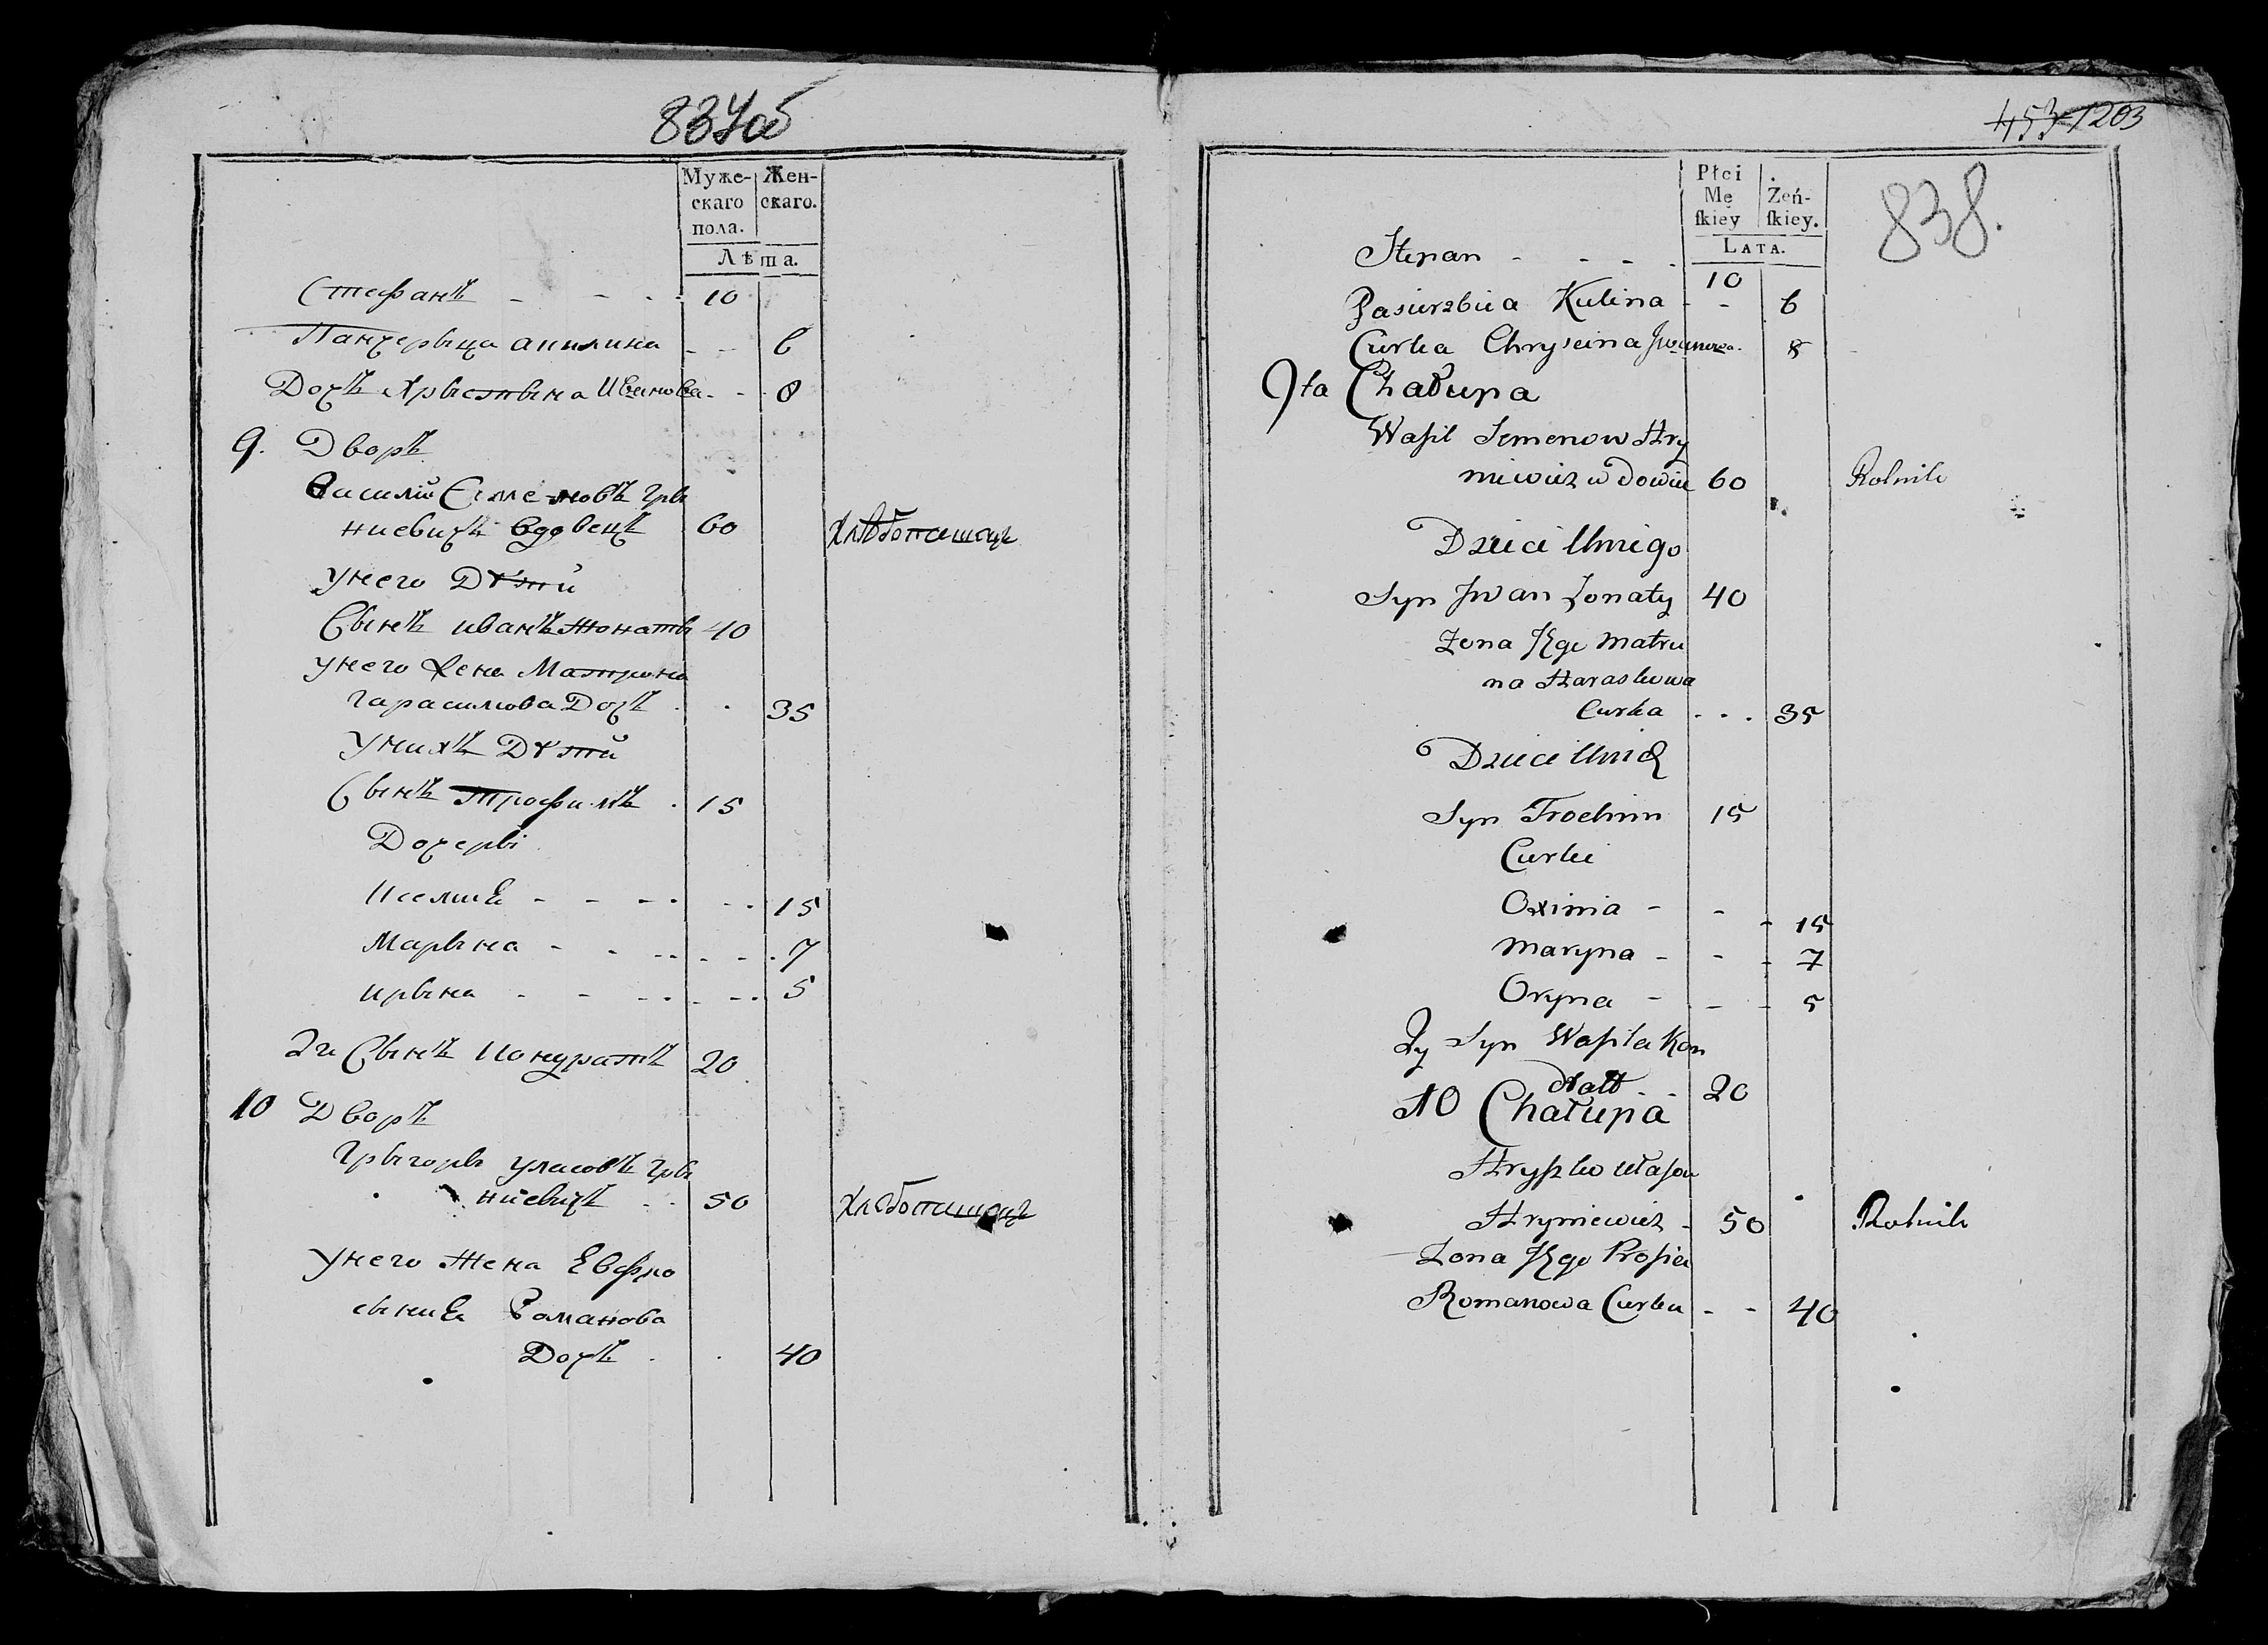 837об
Муже-
скаго
пола.
Жен-
скаго.
Лѣта.
Стефанъ - - - 10
Панчерыца Акилина - - 6
Дочъ Хрыстына Иванова - - 8
9. Дворъ
Василій Семеновъ Гры
ниевичъ вдовецъ 60 Хлѣбопашецъ
У него Дѣти
Сынъ иванъ жонаты 40
У него жена Матрона
Гарасимова Дочъ . . 35
У нихъ Дѣти
Сынъ Трофимъ . 15
Дочеры
15
Марына - - - - 7
ирына - - - - 5
2й Сынъ Кондратъ 20
10 Дворъ
Грыгоры Уласовъ Гры
ниевичъ - - 50 Хлѣбопашецъ
У него жена Евфро
сыниа Романова
Дочъ . . 40
453 1203
838.
Płci
Mę
ſkiey
Żeń-
ſkiey.
Lata.
Stepan - - - - 10
Pasierzbica Kulina - - 6
Curka Chryscina Iwanowa. 8
9ta Chałupa
Waſil Semenow Hry
niewicz wdowiec 60 Rolnik
Dzieci Uniego
Syn Jwan Zonaty 40
Zona Jego Matru
na Haraskowa
Curka . . . 35
Dzieci Unich
Syn Trochim 15
Curki
Oxinia - - - 15
Maryna - - - 7
Oryna - - - 5
2y Syn Waſila Kon
dratt - - 20
10 Chałupa
Hryſzko Ułaſow
Hryniewicz - 50 Rolnik
Zona Jego Proſia
Romanowa Curka - - 40